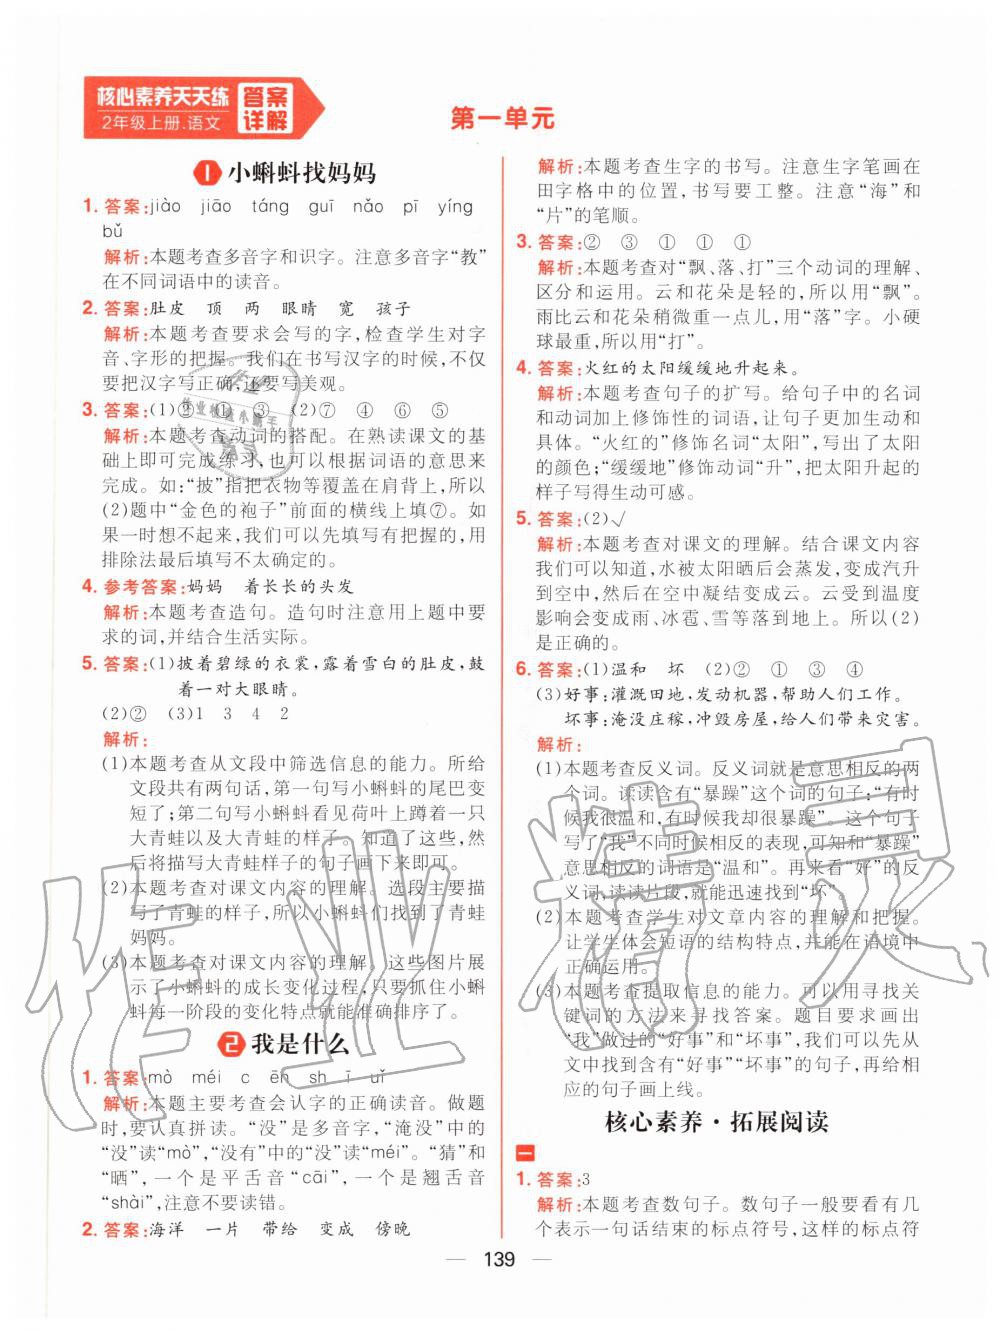 核心素养天天练
2年级上册.语文
答案
详解
第一单元
1 小蝌蚪找妈妈
1. 答案:jiào jiāo táng guī nǎo pī yíng
bǔ
解析:本题考查多音字和识字。注意多音字“教”
在不同词语中的读音。
2. 答案:肚皮 顶 两 眼睛 宽 孩子
解析:本题考查要求会写的字,检查学生对字
音、字形的把握。我们在书写汉字的时候,不仅
要把汉字写正确,还要写美观。
3. 答案:(1)② ① ③ (2)⑦ ④ ⑥ ⑤
解析:本题考查动词的搭配。在熟读课文的基
础上即可完成练习,也可以根据词语的意思来
完成。如:“披”指把衣物等覆盖在肩背上,所以
(2)题中“金色的袍子”前面的横线上填⑦。如
果一时想不起来,我们可以先填写有把握的,用
排除法最后填写不太确定的。
4. 参考答案:妈妈 着长长的头发
解析:本题考查造句。造句时注意用上题中要
求的词,并结合生活实际。
5. 答案:(1)披着碧绿的衣裳,露着雪白的肚皮,鼓
着一对大眼睛。
(2)② (3)1 3 4 2
解析:
(1)本题考查从文段中筛选信息的能力。所给
文段共有两句话,第一句写小蝌蚪的尾巴变
短了;第二句写小蝌蚪看见荷叶上蹲着一只
大青蛙以及大青蛙的样子。知道了这些,然
后将描写大青蛙样子的句子画下来即可。
(2)本题考查对课文内容的理解。选段主要描
写了青蛙的样子,所以小蝌蚪们找到了青蛙
妈妈。
(3)本题考查对课文内容的理解。这些图片展
示了小蝌蚪的成长变化过程,只要抓住小蝌
蚪每一阶段的变化特点就能准确排序了。
2 我是什么
1. 答案:mò méi c ēn sh ī uǐ
解析:本题主要考查会认字的正确读音。做题
时,要认真拼读。“没”是多音字,“淹没”中的
“没”读“mò”,“没有”中的“没”读“méi”。“猜”和
“晒”,一个是平舌音“cāi”,一个是翘舌音
“shài”,注意不要读错。
2. 答案:海洋 一片 带给 变成 傍晚
解析:本题考查生字的书写。注意生字笔画在
田字格中的位置,书写要工整。注意“海”和
“片”的笔顺。
3. 答案:② ③ ① ① ①
解析:本题考查对“飘、落、打”三个动词的理解、
区分和运用。云和花朵是轻的,所以用“飘”。
雨比云和花朵稍微重一点儿,用“落”字。小硬
球最重,所以用“打”。
4. 答案:火红的太阳缓缓地升起来。
解析:本题考查句子的扩写。给句子中的名词
和动词加上修饰性的词语,让句子更加生动和
具体。“火红的”修饰名词“太阳”,写出了太阳
的颜色;“缓缓地”修饰动词“升”,把太阳升起的
样子写得生动可感。
5. 答案:(2)√
解析:本题考查对课文的理解。结合课文内容
我们可以知道,水被太阳晒后会蒸发,变成汽升
到空中,然后在空中凝结变成云。云受到温度
影响会变成雨、冰雹、雪等落到地上。所以(2)
是正确的。
6. 答案:(1)温和 坏 (2)② ① ③ ④
(3)好事:灌溉田地,发动机器,帮助人们工作。
坏事:淹没庄稼,冲毁房屋,给人们带来灾害。
解析:
(1)本题考查反义词。反义词就是意思相反的两
个词。读读含有“暴躁”这个词的句子:“有时
候我很温和,有时候我却很暴躁”。这个句子
写了“我”不同时候相反的表现,可知和“暴躁”
意思相反的词语是“温和”。再来看“好”的反
义词,读读片段,就能迅速找到“坏”。
(2)本题考查学生对文章内容的理解和把握。
让学生体会短语的结构特点,并能在语境中
正确运用。
(3)本题考查提取信息的能力。可以用寻找关
键词的方法来寻找答案。题目要求画出
“我”做过的“好事”和“坏事”,我们可以先从
文中找到含有“好事”“坏事”的句子,再给相
应的句子画上线。
核心素养·拓展阅读
一
1. 答案:3
解析:本题考查数句子。数句子一般要看有几
个表示一句话结束的标点符号,这样的标点符
139
作业精灵